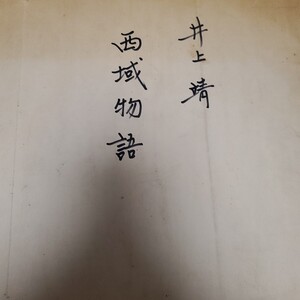 井上靖
西域物語